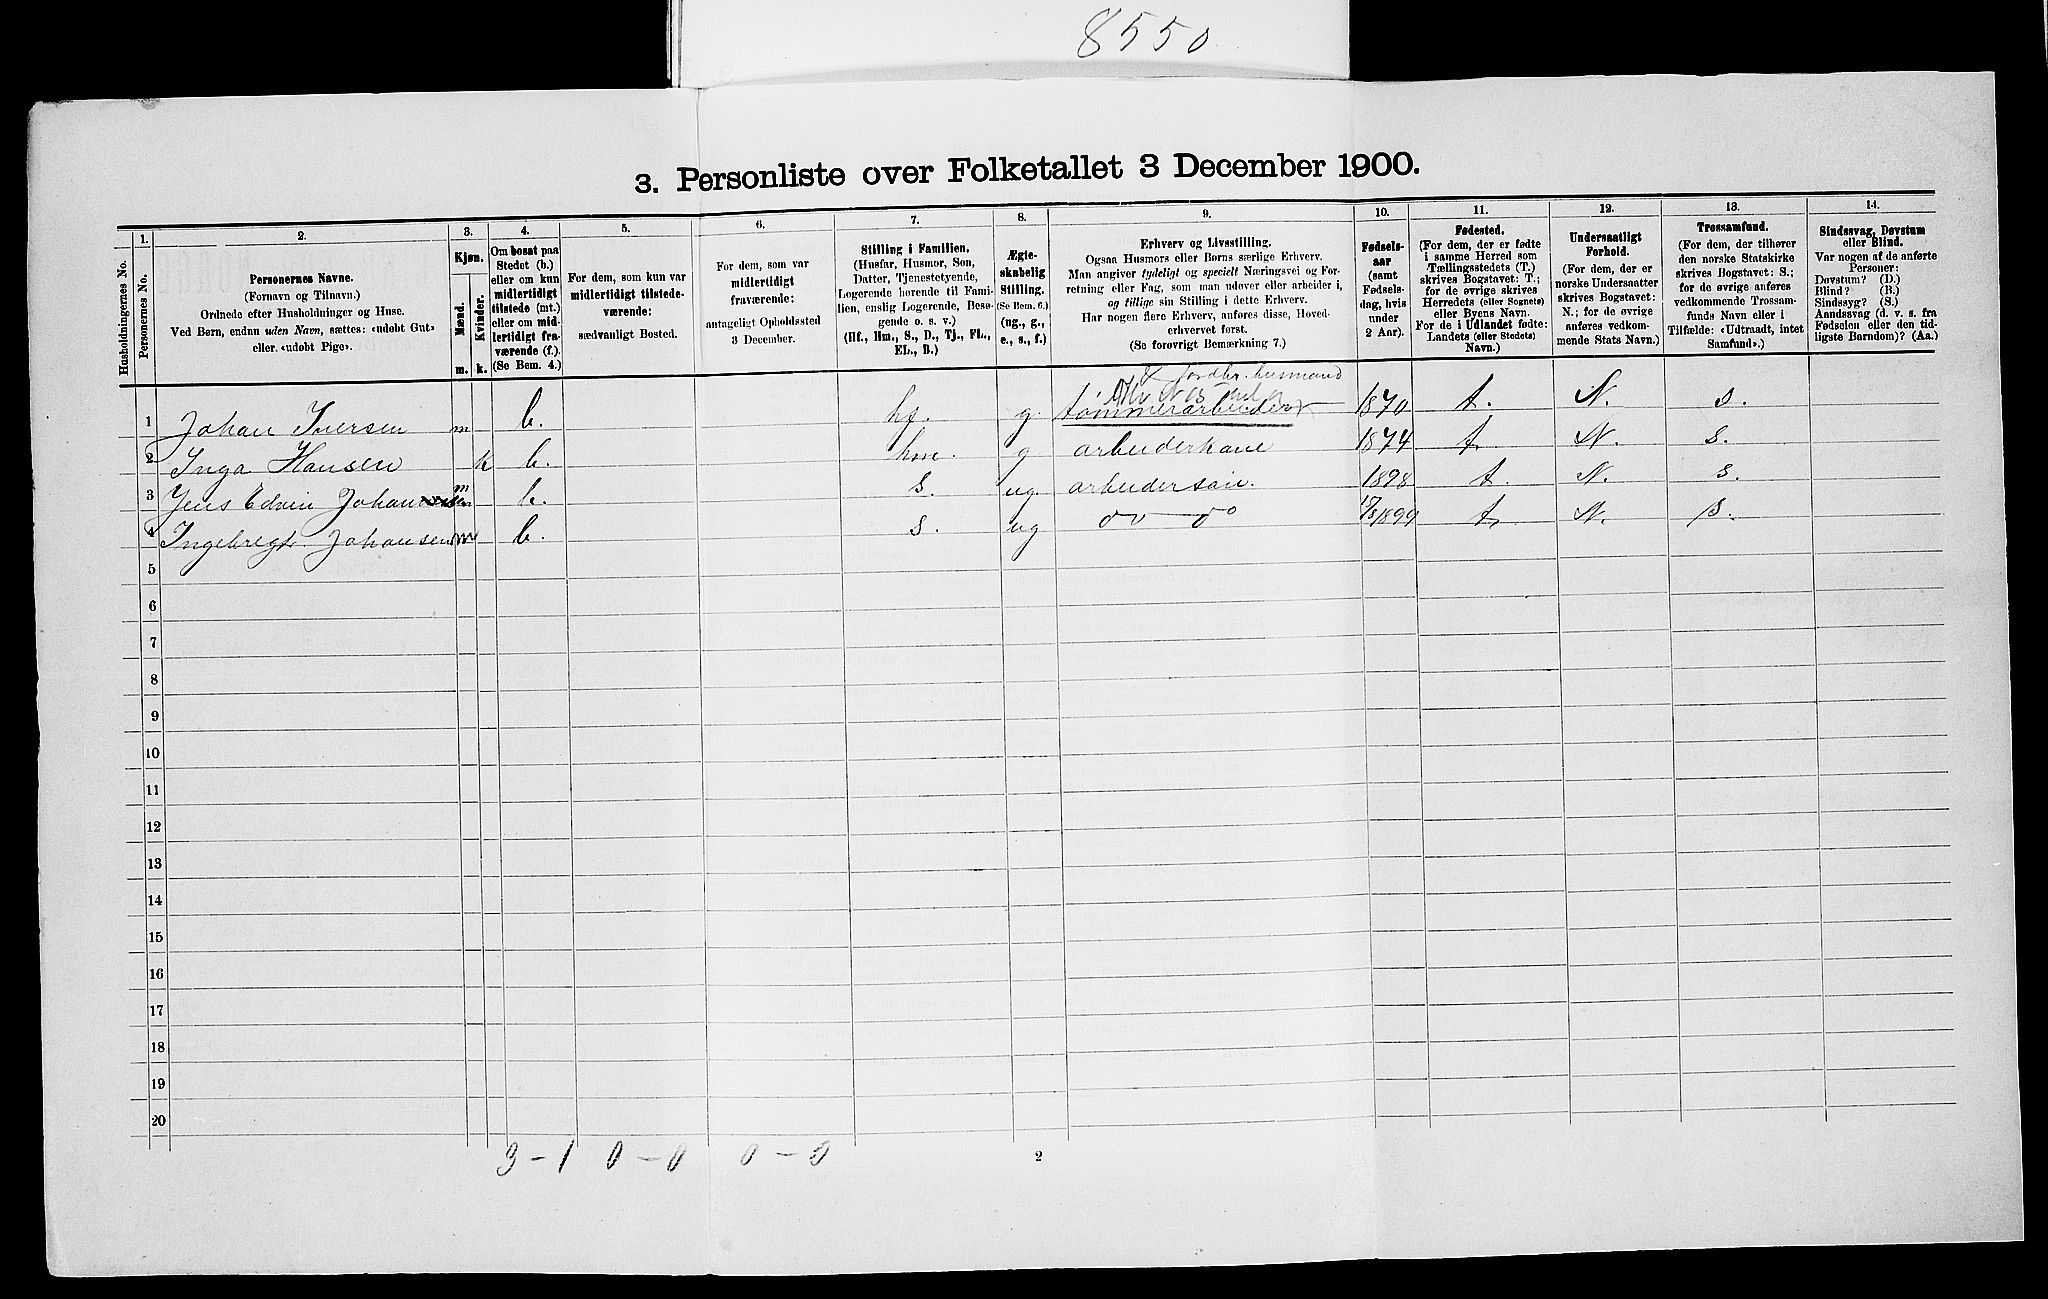 8550
3. Personliste over Folketallet 3 December 1900.
1. 2. 3. 4. 5. 6. 7. 8. 9. 10. 11. 12. 13. 14.
Husholdningernes No.
Personernes No.
Personernes Navne.
(Fornavn og Tilnavn.)
Ordnede efter Husholdninger og Huse.
Ved Børn, endnu uden Navn, sættes: «udøbt Gut»
eller «udøbt Pige».
Kjøn.
Mænd.
Kvinder.
m. k.
Om bosat paa
Stedet (b.)
eller om kun
midlertidigt
tilstede (mt.)
eller om mid-
lertidigt fra-
værende (f.).
(Se Bem. 4.)
For dem, som kun var
midlertidigt tilstede-
værende:
sædvanligt Bosted.
For dem, som var
midlertidigt
fraværende:
antageligt Opholdssted
3 December.
Stilling i Familien.
(Husfar, Husmor, Søn,
Datter, Tjenestetyende,
Logerende hørende til Fami-
lien, enslig Logerende, Besø-
gende o. s. v.)
(Hf., Hm., S., D., Tj., FL.,
EL., B.)
Ægte-
skabelig
Stilling.
(Se Bem. 6.)
(ug., g.,
e., s., f.)
Erhverv og Livsstilling.
Ogsaa Husmors eller Børns særlige Erhverv.
Man angiver tydeligt og specielt Næringsvei og For-
retning eller Fag, som man udøver eller arbeider i,
og tillige sin Stilling i dette Erhverv.
Har nogen flere Erhverv, anføres disse, Hoved-
erhvervet først.
(Se forøvrigt Bemærkning 7.)
Fødsels-
aar
(samt
Fødsels-
dag, hvis
under
2 Aar).
Fødested.
(For dem, der er fødte
i samme Herred som
Tællingsstedets (T.)
skrives Bogstavet: T.;
for de øvrige skrives
Herredets (eller Sognets)
eller Byens Navn.
For de i Udlandet fødte:
Landets (eller Stedets)
Navn.)
Undersaatligt
Forhold.
(For dem, der er
norske Undersaatter
skrives Bogstavet:
N.; for de øvrige
anføres vedkom-
mende Stats Navn.)
Trossamfund.
(For dem, der tilhører
den norske Statskirke
skrives Bogstavet: S.;
for de øvrige anføres
vedkommende Trossam-
funds Navn eller i
Tilfælde: «Udtraadt, intet
Samfund».)
Sindssvag, Døvstum
eller Blind.
Var nogen af de anførte
Personer:
Døvstum? (D.)
Blind? (B.)
Sindssyg? (S.)
Aandssvag (d. v. s. fra
Fødselen eller den tid-
ligste Barndom)? (Aa.)
& jordbr. husmand
1 Johan Iversen m b. hf. g. tømmerarbeider 1870 t. N. s.
2 Inga Hansen k b. hm. g. arbeiderkone 1874 t. N. s.
3 Jens Edvin Johansen m b. s. ug. arbeidersøn. 1898 t. N. s.
4 Ingebregt Johansen m b. s. ug do do 1899 t. N. s.
5
6
7
8
9
10
11
12
13
14
15
16
17
18
19
20
3 - 1 0 - 0 0 - 0
2